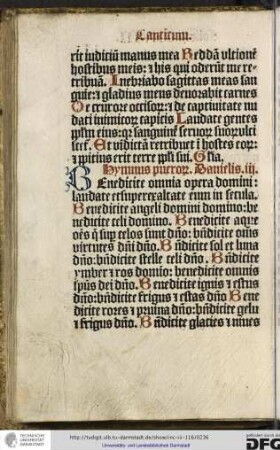 Canticum.
rit iudiciū manus mea Reddā vltionē
hostibus meis: ⁊ his qui oderūt me re-
tribuā. Inebriabo sagittas meas san
guine: ⁊ gladius meus deuorabit carnes
De cruore occisor: ⁊ de captiuitate nu
dati inimicor capitis Laudate gentes
eius: qr sanguinē seruor suor vlci
Et vidictā retribuet ī hostes eor:
⁊ ppicius erit terre ppli sui. Gl̄ia.
Hymnus pueror. Danielis. iij.
Benedicite omnia opera domini domino:
laudate et supexaltate eum in secula.
Benedicite angeli domini domino: be
nedicite celi domino. Benedicite aque
oēs q̄ sup celos sunt dn̄o: bn̄dicite oēs
virtutes dn̄i dn̄o. Bn̄dicite sol et luna
dn̄o: bn̄dicite stelle celi dn̄o. Bn̄dicite
ymber ⁊ ros domino: benedicite omnis
spūs dei dn̄o. Benedicite ignis ⁊ estus
dn̄o: bn̄dicite frigus ⁊ estas dn̄o Bene
dicite rores ⁊ pruina dn̄o: bn̄dicite gelu
⁊ frigus dn̄o. Bn̄dicite glacies ⁊ niues
http://tudigit.ulb.tu-darmstadt.de/show/inc-iii-116/0236
Universitäts- und Landesbibliothek Darmstadt
TECHNISCHE
UNIVERSITÄT
DARMSTADT
DFG